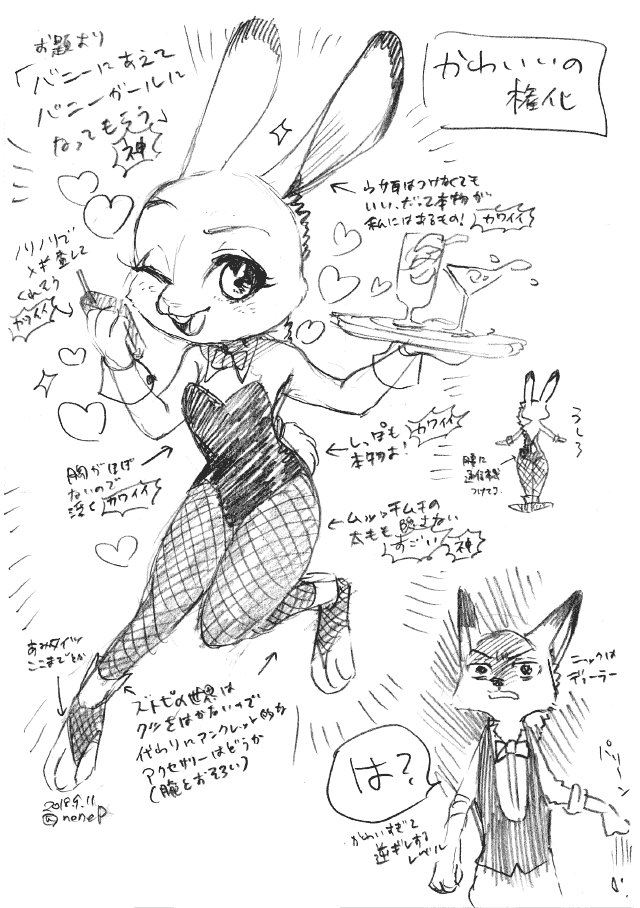 お題より
「バニーにあえて
バニーガールに
なってもらう」
神
かわいいの
権化
←うさ耳はつけなくても
いい、だって本物が
私にはあるもの!
カワイイ
ノリノリで
してくれてそう
カワイイ
←しっぽも
本物よ!
カワイイ
うしろ
腰に
通信機
つけてる
胸がほぼ
ないので
浮く
カワイイ
←ムッッチムチの
太ももも隠せない
すごい
神
あみタイツ
ここまでとか
ズトピの世界は
クツをはかないので
代わりにアンクレット的な
アクセサリーはどうか
(腕とおそろい)
ニックは
ディーラー
は?
パリーン
かわいすぎて
逆ギレする
レベル
2018.9.11
@neneP